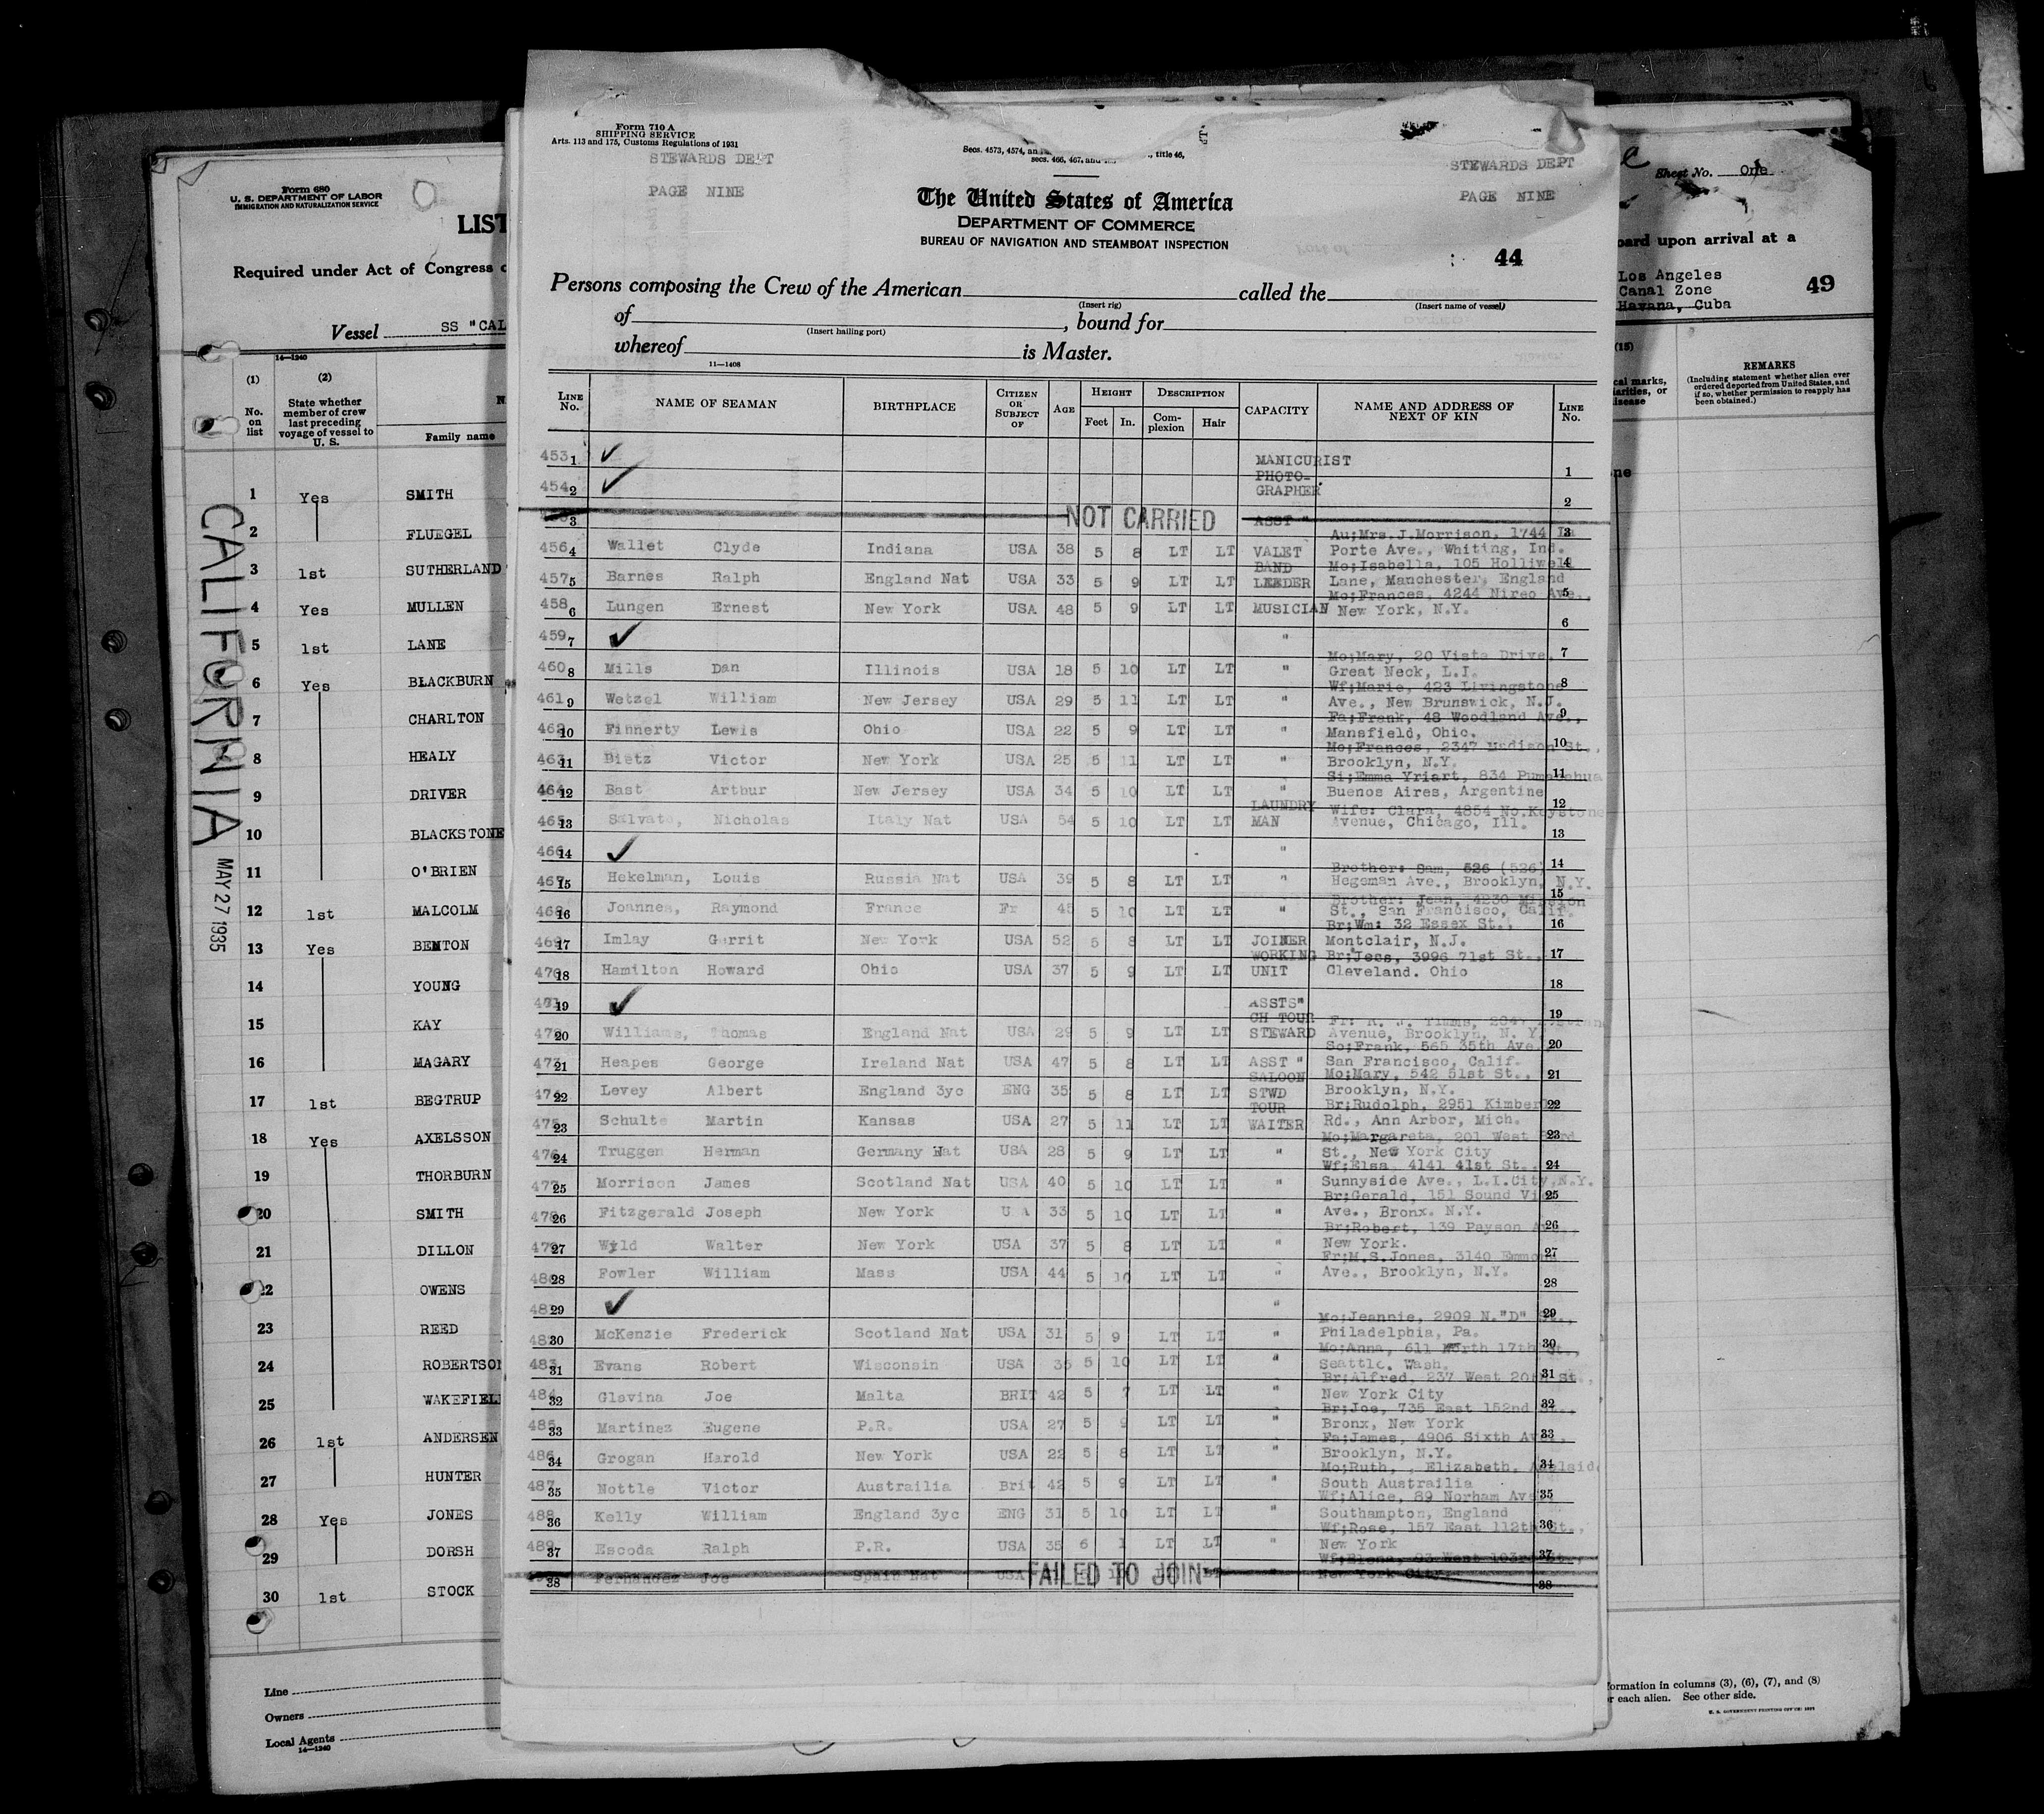 Form 680
U. S. DEPARTMENT OF LABOR
IMMIGRATION AND NATURALIZATION SERVICE
LIST
Required under Act of Congress
Vessel SS "CAL
14—1240
(1) (2)
No. on list
State whether member of crew last preceding voyage of vessel to U. S.
Family name
1 Yes SMITH
2 FLUEGEL
3 1st SUTHERLAND
4 Yes MULLEN
5 1st LANE
6 Yes BLACKBURN
7 CHARLTON
8 HEALY
9 DRIVER
10 BLACKSTONE
11 O'BRIEN
12 1st MALCOLM
13 Yes BENTON
14 YOUNG
15 KAY
16 MAGARY
17 1st BEGTRUP
18 Yes AXELSSON
19 THORBURN
20 SMITH
21 DILLON
22 OWENS
23 REED
24 ROBERTSON
25 WAKEFIEL
26 1st ANDERSEN
27 HUNTER
28 Yes JONES
29 DORSH
30 1st STOCK
CALIFORNIA
MAY 27 1935
Line
Owners
Local Agents
14—1240
Form 710 A
SHIPPING SERVICE
Arts. 113 and 175, Customs Regulations of 1931
STEWARDS DEPT
PAGE NINE
Secs. 4573, 4574, an
secs. 466, 467, and
, title 46,
STEWARDS DEPT
PAGE NINE
The United States of America
DEPARTMENT OF COMMERCE
BUREAU OF NAVIGATION AND STEAMBOAT INSPECTION
44
Persons composing the Crew of the American called the
(Insert rig) (Insert name of vessel)
of , bound for
(Insert hailing port)
whereof is Master.
11—1408
LINE No. NAME OF SEAMAN BIRTHPLACE CITIZEN OR SUBJECT OF AGE HEIGHT Feet In. DESCRIPTION Complexion Hair CAPACITY NAME AND ADDRESS OF NEXT OF KIN LINE No.
453 1 ✓ MANICURIST 1
454 2 ✓ PHOTO-
GRAPHER 2
3 NOT CARRIED ASST " 3
Au;Mrs.J.Morrison, 1744 La
456 4 Wallet Clyde Indiana USA 38 5 8 LT LT VALET Porte Ave., Whiting, Ind. 4
BAND Mo;Isabella, 105 Holliwell
457 5 Barnes Ralph England Nat USA 33 5 9 LT LT LEEDER Lane, Manchester, England 5
Mo;Frances, 4244 Nireo Ave.,
458 6 Lungen Ernest New York USA 48 5 9 LT LT MUSICIAN New York, N.Y. 6
459 7 ✓ " 7
Mo;Mary, 20 Vista Drive,
460 8 Mills Dan Illinois USA 18 5 10 LT LT " Great Neck, L.I. 8
Wf;Marie, 423 Livingstone
461 9 Wetzel William New Jersey USA 29 5 11 LT LT " Ave., New Brunswick, N.J. 9
Fa;Frank, 48 Woodland Ave.,
462 10 Finnerty Lewis Ohio USA 22 5 9 LT LT " Mansfield, Ohio. 10
Mo;Frances, 2347 Madison St.,
463 11 Dietz Victor New York USA 25 5 11 LT LT " Brooklyn, N.Y. 11
Si;Emma Yriart, 834
464 12 Bast Arthur New Jersey USA 34 5 10 LT LT " Buenos Aires, Argentine 12
LAUNDRY Wife: Clara, 4854 No.Keystone
465 13 Salvato, Nicholas Italy Nat USA 54 5 10 LT LT MAN Avenue, Chicago, Ill. 13
466 14 ✓ " 14
Brother: Sam, 526 (526)
467 15 Hekelman, Louis Russia Nat USA 39 5 8 LT LT " Hegeman Ave., Brooklyn, N.Y. 15
Brother: Jean, 4230 Mission
468 16 Joannes, Raymond France Fr 45 5 10 LT LT " St., San Francisco, Calif. 16
Br;Wm: 32 Essex St.,
469 17 Imlay Gerrit New York USA 52 5 8 LT LT JOINER Montclair, N.J. 17
WORKING Br;Jess, 3996 71st St.,
470 18 Hamilton Howard Ohio USA 37 5 9 LT LT UNIT Cleveland. Ohio 18
471 19 ✓ ASSTS" 19
CH TOUR Fr: R. J. Timms,
472 20 Williams, Thomas England Nat USA 29 5 9 LT LT STEWARD Avenue, Brooklyn, N. Y. 20
So;Frank, 565 35th Ave.
473 21 Heapes George Ireland Nat USA 47 5 8 LT LT ASST " San Francisco, Calif. 21
SALOON Mo;Mary, 542 51st St.,
474 22 Levey Albert England 3yc ENG 35 5 8 LT LT STWD Brooklyn, N.Y. 22
TOUR Br;Rudolph, 2951
475 23 Schulte Martin Kansas USA 27 5 11 LT LT WAITER Rd., Ann Arbor, Mich. 23
Mo;Margareta, 201 West
476 24 Truggen Herman Germany Nat USA 28 5 9 LT LT " St., New York City 24
Wf;Elsa, 4141 41st St.,
477 25 Morrison James Scotland Nat USA 40 5 10 LT LT " Sunnyside Ave., L.I.City,N.Y. 25
Br;Gerald, 151 Sound
478 26 Fitzgerald Joseph New York U A 33 5 10 LT LT " Ave., Bronx. N.Y. 26
Br;Robert, 139 Payson
479 27 Wyld Walter New York USA 37 5 8 LT LT " New York. 27
Fr;M.S.Jones, 3140
480 28 Fowler William Mass USA 44 5 10 LT LT " Ave., Brooklyn, N.Y. 28
481 29 ✓ " 29
Mo;Jeannie, 2909 N."D" St.,
482 30 McKenzie Frederick Scotland Nat USA 31 5 9 LT LT " Philadelphia, Pa. 30
Mo;Anna, 611 North 17th St.,
483 31 Evans Robert Wisconsin USA 35 5 10 LT LT " Seattle. Wash. 31
Br;Alfred, 237 West 20th St.,
484 32 Glavina Joe Malta BRIT 42 5 7 LT LT " New York City 32
Br;Joe, 735 East 152nd St.,
485 33 Martinez Eugene P.R. USA 27 5 9 LT LT " Bronx, New York 33
Fa;James, 4906 Sixth Ave.,
486 34 Grogan Harold New York USA 22 5 8 LT LT " Brooklyn, N.Y. 34
Mo;Ruth, , Elizabeth. Adelaide
487 35 Nottle Victor Austrailia Brit 42 5 9 LT LT " South Austrailia 35
Wf;Alice, 89 Norham Ave
488 36 Kelly William England 3yc ENG 31 5 10 LT LT " Southampton, England 36
Wf;Rose, 157 East 112th St.,
489 37 Escoda Ralph P.R. USA 35 6 1 LT LT " New York 37
Wf;Elena, 93 West 103rd St.,
38 Fernandez Joe Spain Nat USA FAILED TO JOIN LT " New York City. 38
Sheet No. One
oard upon arrival at a
Los Angeles
Canal Zone
Havana, Cuba
49
(15)
cal marks,
iarities, or
isease
REMARKS
(Including statement whether alien ever ordered deported from United States, and if so, whether permission to reapply has been obtained.)
ne
formation in columns (3), (6), (7), and (8)
r each alien. See other side.
U. S. GOVERNMENT PRINTING OFFICE